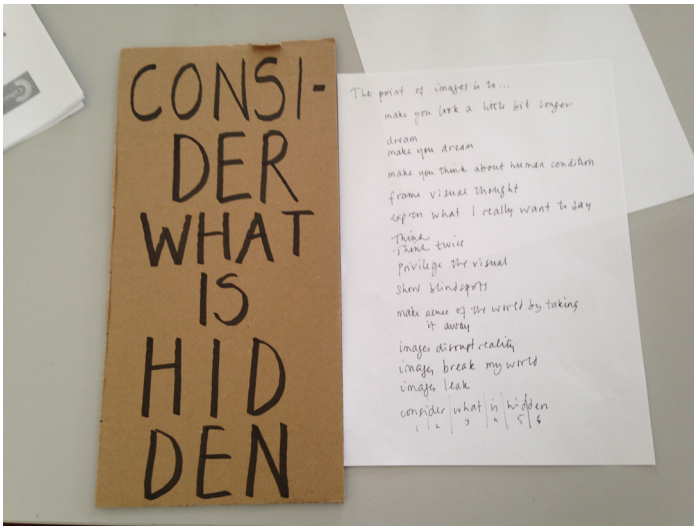 CONSI-
DER
WHAT
IS
HID
DEN
The point of images is to...
make you look a little bit longer
dream
make you dream
make you think about human condition
frame visual thought
express what I really want to say
Think
Think twice
privilege the visual
show blindspots
make sense of the world by taking
it away
images disrupt reality
images break my world
images leak
consider what is hidden
1 2 3 4 5 6